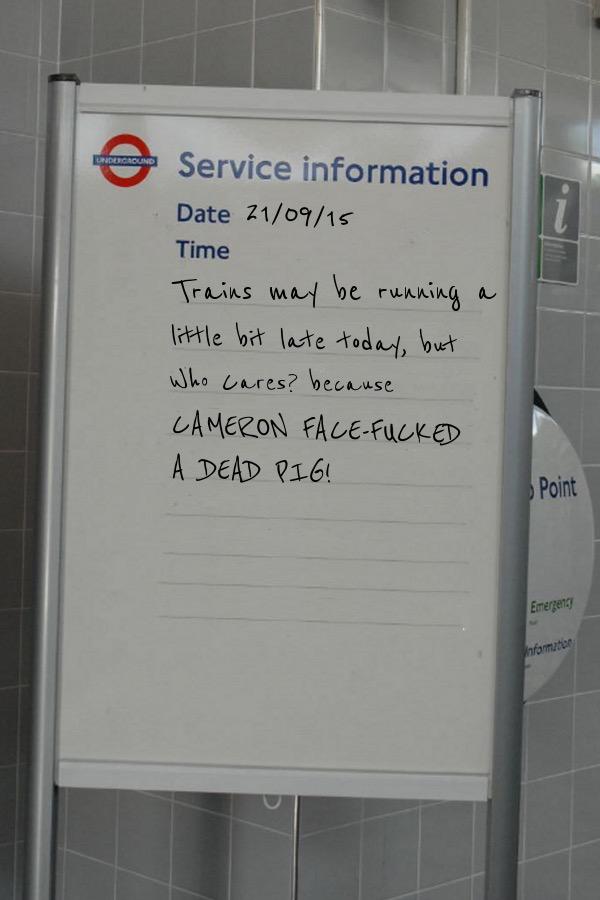 UNDERGROUND
Service information
Date 21/09/15
Time
Trains may be running a
little bit late today, but
who cares? because
CAMERON FACE-FUCKED
A DEAD PIG!
i
Point
Emergency
Information